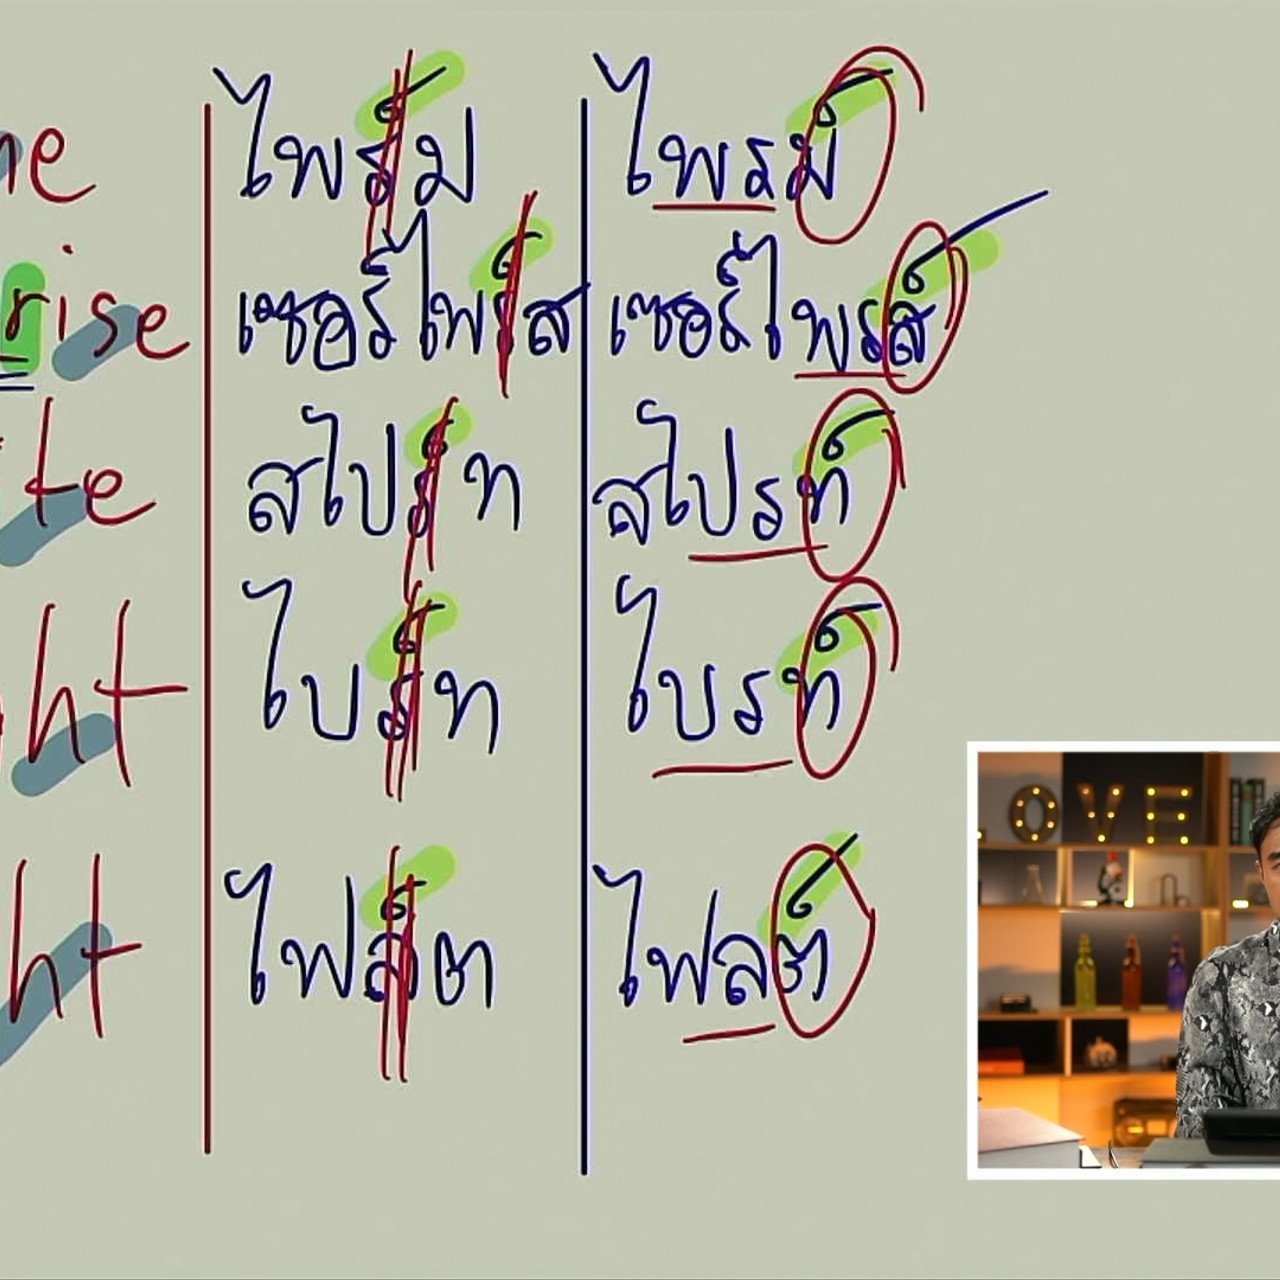 ไพร์ม ไพรม์
rise เซอร์ไพร์ส เซอร์ไพรส์
te สไปร์ท สไปรท์
ht ไบร์ท ไบรท์
ht ไฟล์ต ไฟลต์
OVE